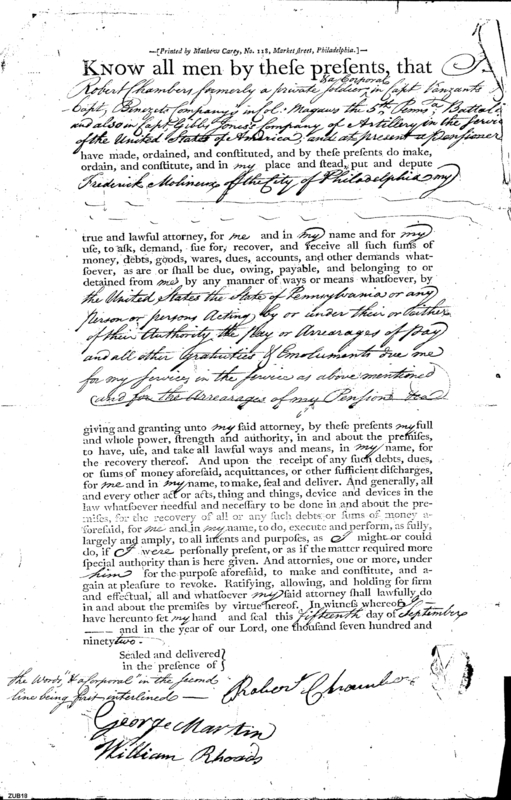 —[Printed by Mathew Carey, No. 118, Market street, Philadelphia.]—
KNOW all men by these presents, that I
& a Corporal
Robert Chambers formerly a private soldier in Capt Vanzants &
Capt. Binezets Company's in Col: Magaws the 5th Penns.a Battali
and also in Capt Gibbs Jones's Company of Artillery in the Service
of the United States of America, and at present a Pensioner
have made, ordained, and constituted, and by these presents do make,
ordain, and constitute, and in my place and stead, put and depute
Frederick Molineux of the City of Philadelphia my
true and lawful attorney, for me and in my name and for my
use, to ask, demand, sue for, recover, and receive all such sums of
money, debts, goods, wares, dues, accounts, and other demands what-
soever, as are or shall be due, owing, payable, and belonging to or
detained from me, by any manner of ways or means whatsoever, by
the United States the State of Pennsylvania or any
Person or persons Acting by or under their or either
of their Authority the Pay or Arrearages of Pay
and all other Gratuities & Emoluments due me
for my services in the service as above mentioned
(and for the Arrearages of my Pension
giving and granting unto my said attorney, by these presents my full
and whole power, strength and authority, in and about the premises,
to have, use, and take all lawful ways and means, in my name, for
the recovery thereof. And upon the receipt of any such debts, dues,
or sums of money aforesaid, acquittances, or other sufficient discharges,
for me and in my name, to make, seal and deliver. And generally, all
and every other act or acts, thing and things, device and devices in the
law whatsoever needful and necessary to be done in and about the pre-
mises, for the recovery of all or any such debts or sums of money a-
foresaid, for me and in my name, to do, execute and perform, as fully,
largely and amply, to all intents and purposes, as I might or could
do, if I were personally present, or as if the matter required more
special authority than is here given. And attornies, one or more, under
him for the purpose aforesaid, to make and constitute, and a-
gain at pleasure to revoke. Ratifying, allowing, and holding for firm
and effectual, all and whatsoever my said attorney shall lawfully do
in and about the premises by virtue hereof. In witness whereof I
have hereunto set my hand and seal this fifteenth day of September
—— and in the year of our Lord, one thousand seven hundred and
ninety two.
Sealed and delivered }
in the presence of }
the Words "& a Corporal" in the second
line being first interlined —
Robert Chambers
George Martin
William Rhoads
ZUB18